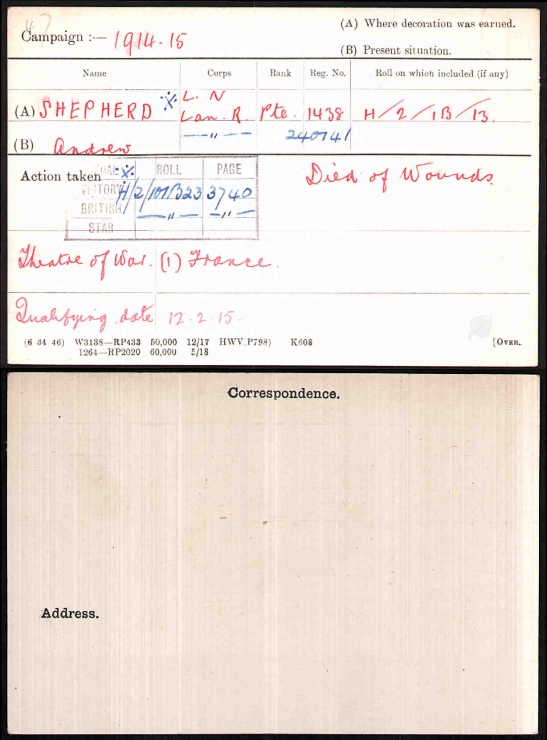 47
Campaign :— 1914-15
(A) Where decoration was earned.
(B) Present situation.
Name Corps Rank Reg. No. Roll on which included (if any)
(A) SHEPHERD L. N
Lan. R. Pte. 1438 H/2/1B/13.
—"— 240741
(B) Andrew
Action taken
ROLL PAGE
VICTORY H/2/101B23 3740
BRITISH —"— —"—
STAR
Died of Wounds.
Theatre of War. (1) France.
Qualifying date 12.2.15.
(6 34 46) W3138—RP433 50,000 12/17 HWV(P798) K608 [OVER.
1264—RP2020 60,000 5/18
Correspondence.
Address.